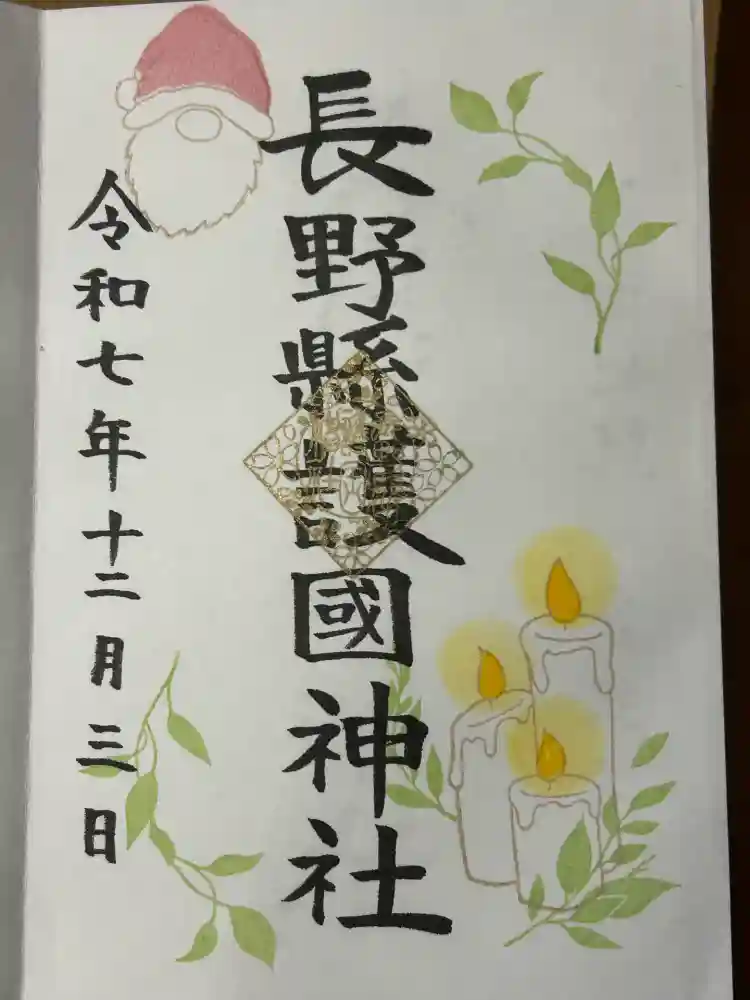 長野縣護國神社
令和七年十二月三日